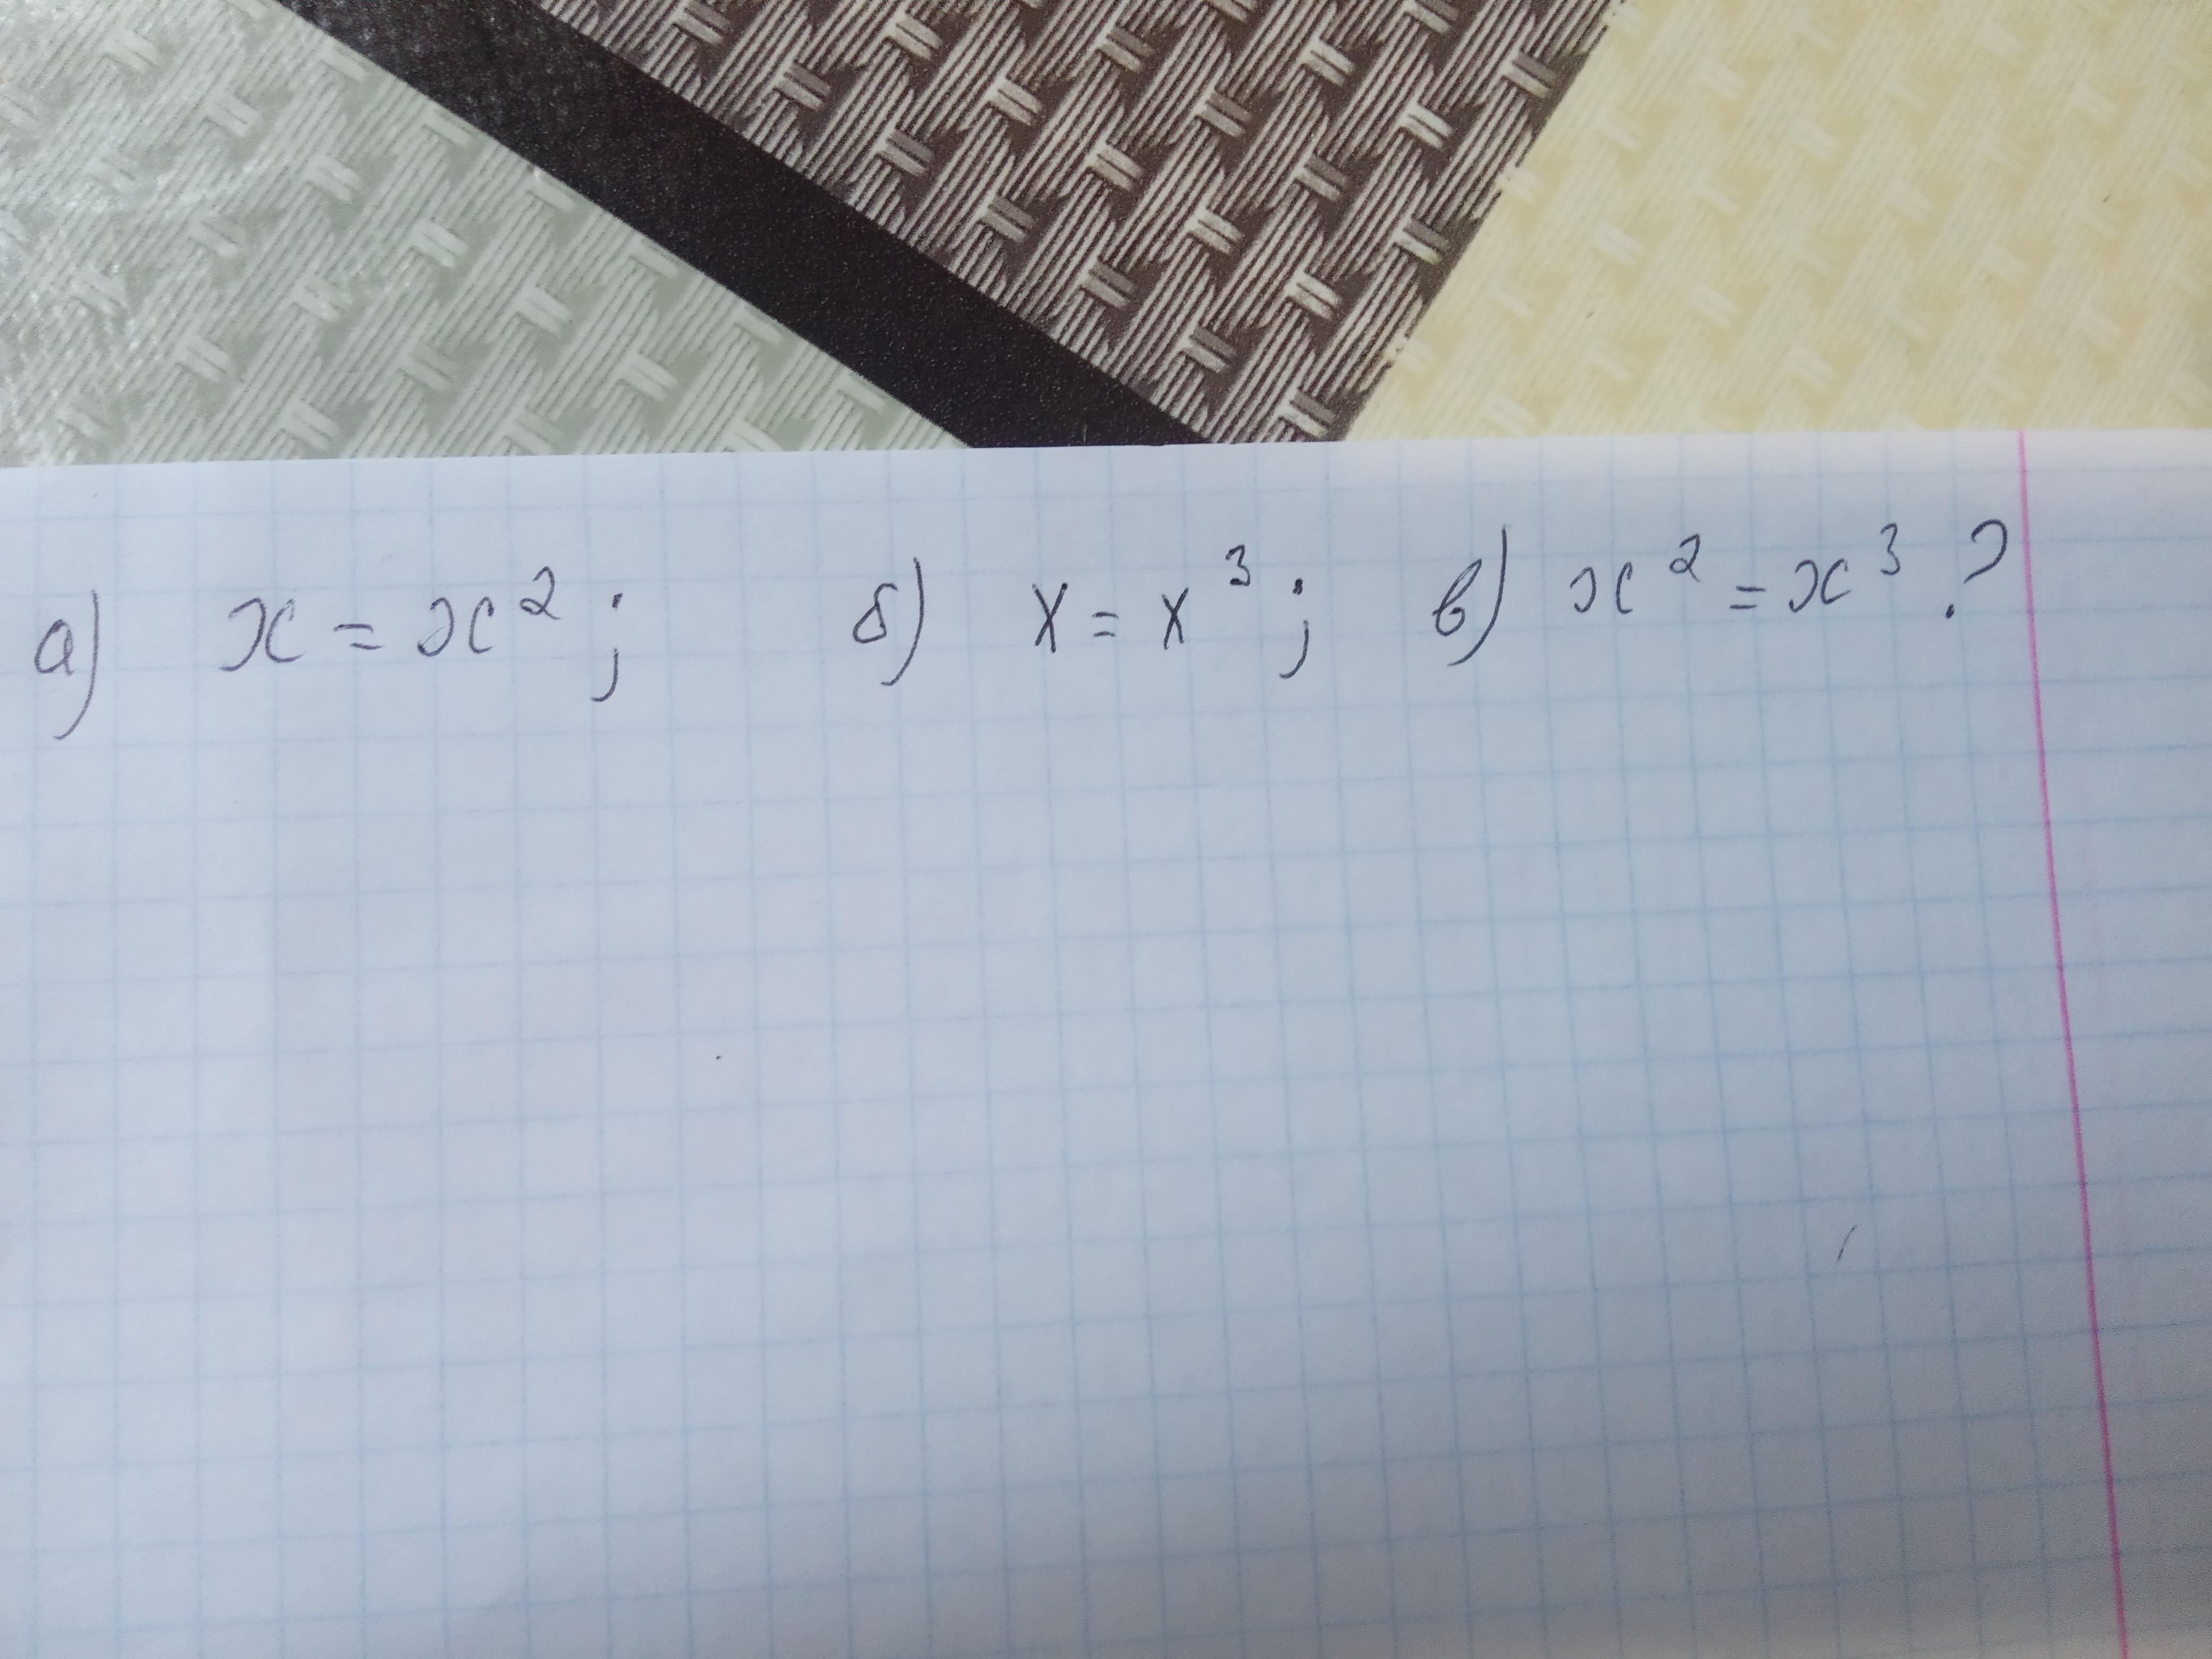 а) x = x²; б) x = x³; в) x² = x³?